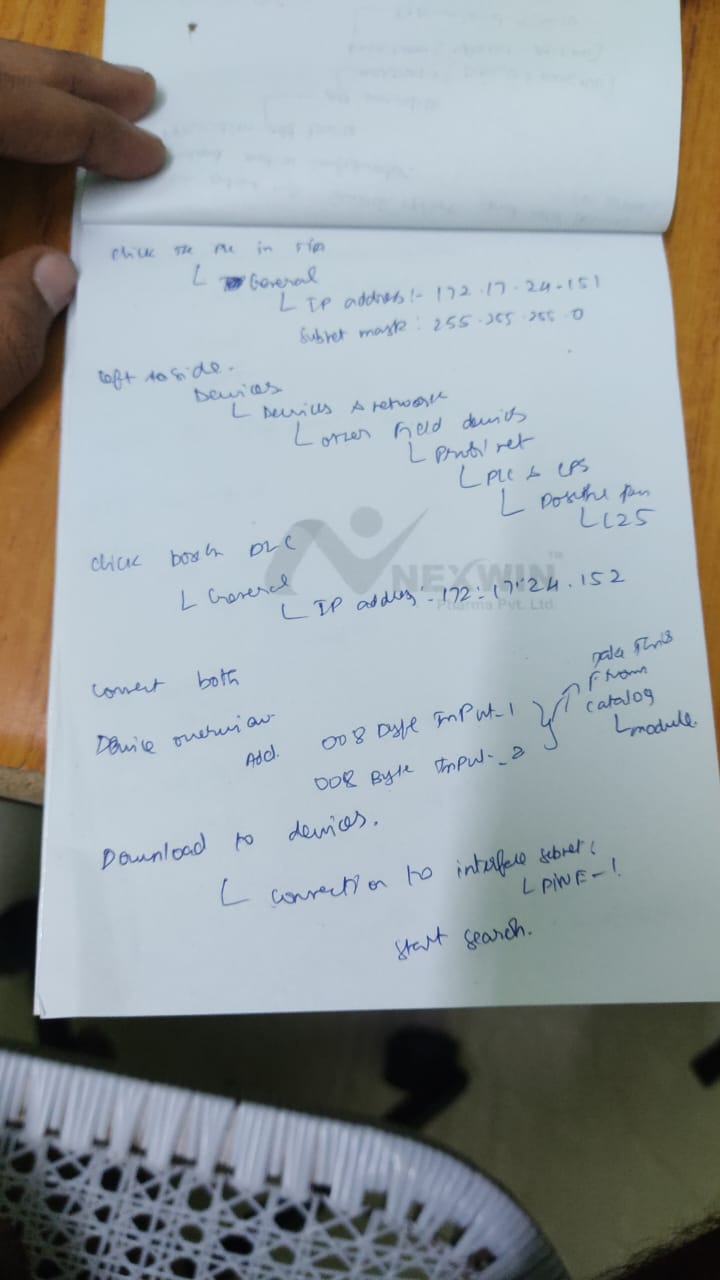 click the PLC in TIA
└ General
└ IP address:- 172.17.24.151
Subnet mask: 255.255.255.0
left side.
Devices
└ Devices & network
└ other field devices
└ Profinet
└ PLC & CPS
└
└ L25
click bosch PLC
└ General
└ IP address:- 172.17.24.152
NEXWIN™
Pharma Pvt. Ltd.
connect both
Device overview
Add. 008 Byte InPut-1
008 Byte InPut-2
Take this
from
catalog
└ module.
Download to devices.
└ connection to interface subnet:
└ PN/IE-1.
start search.